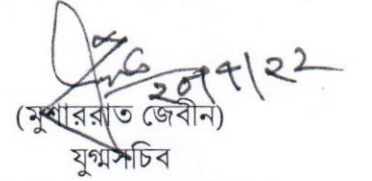 ২০/৭/২২
(মুশাররাত জেবীন)
যুগ্মসচিব